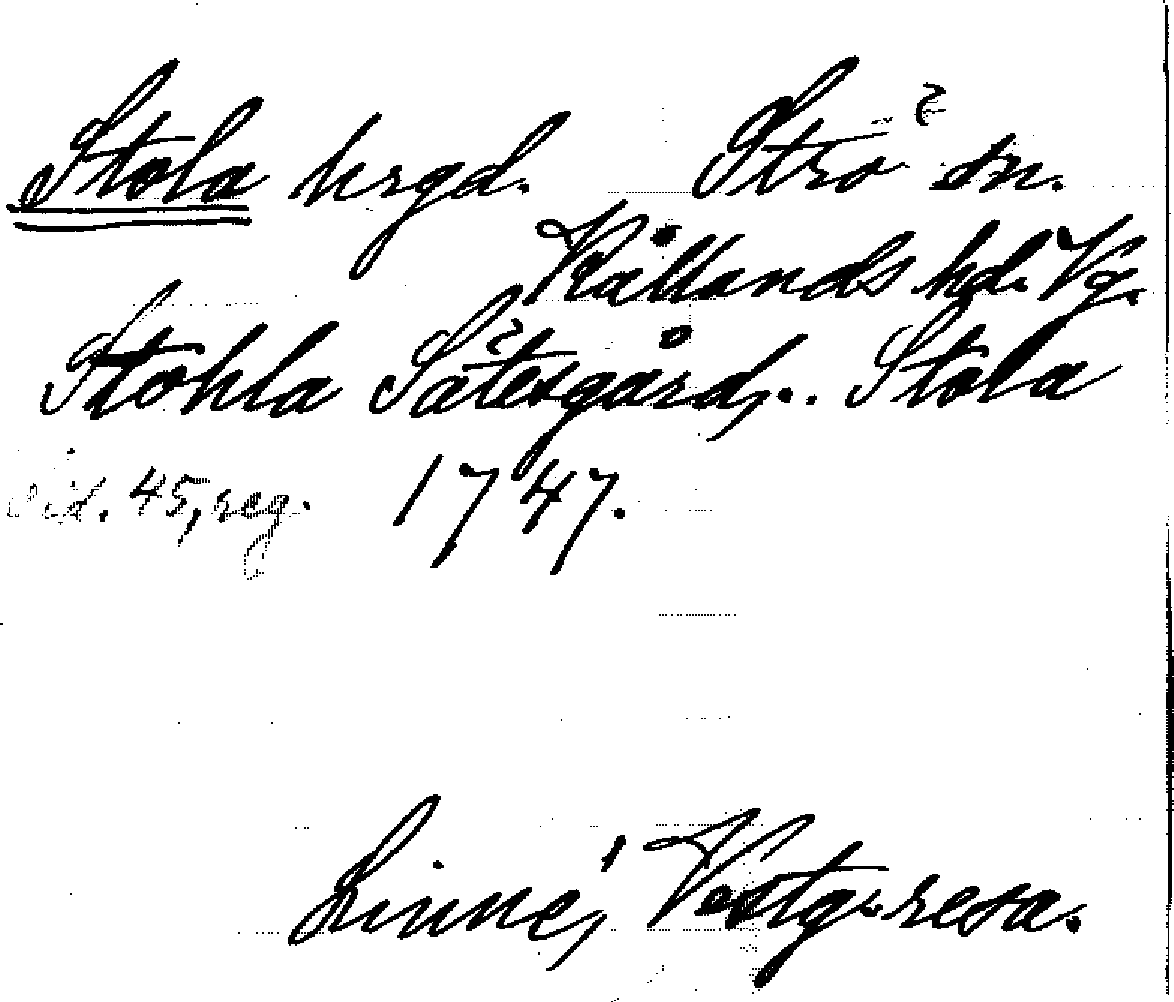 Stola hrgd. Strö sn.
Kållands hd. Vg.
Stohla Sätesgård,.. Stola
sid. 45, reg. 1747.
Linné, Vestg. resa.